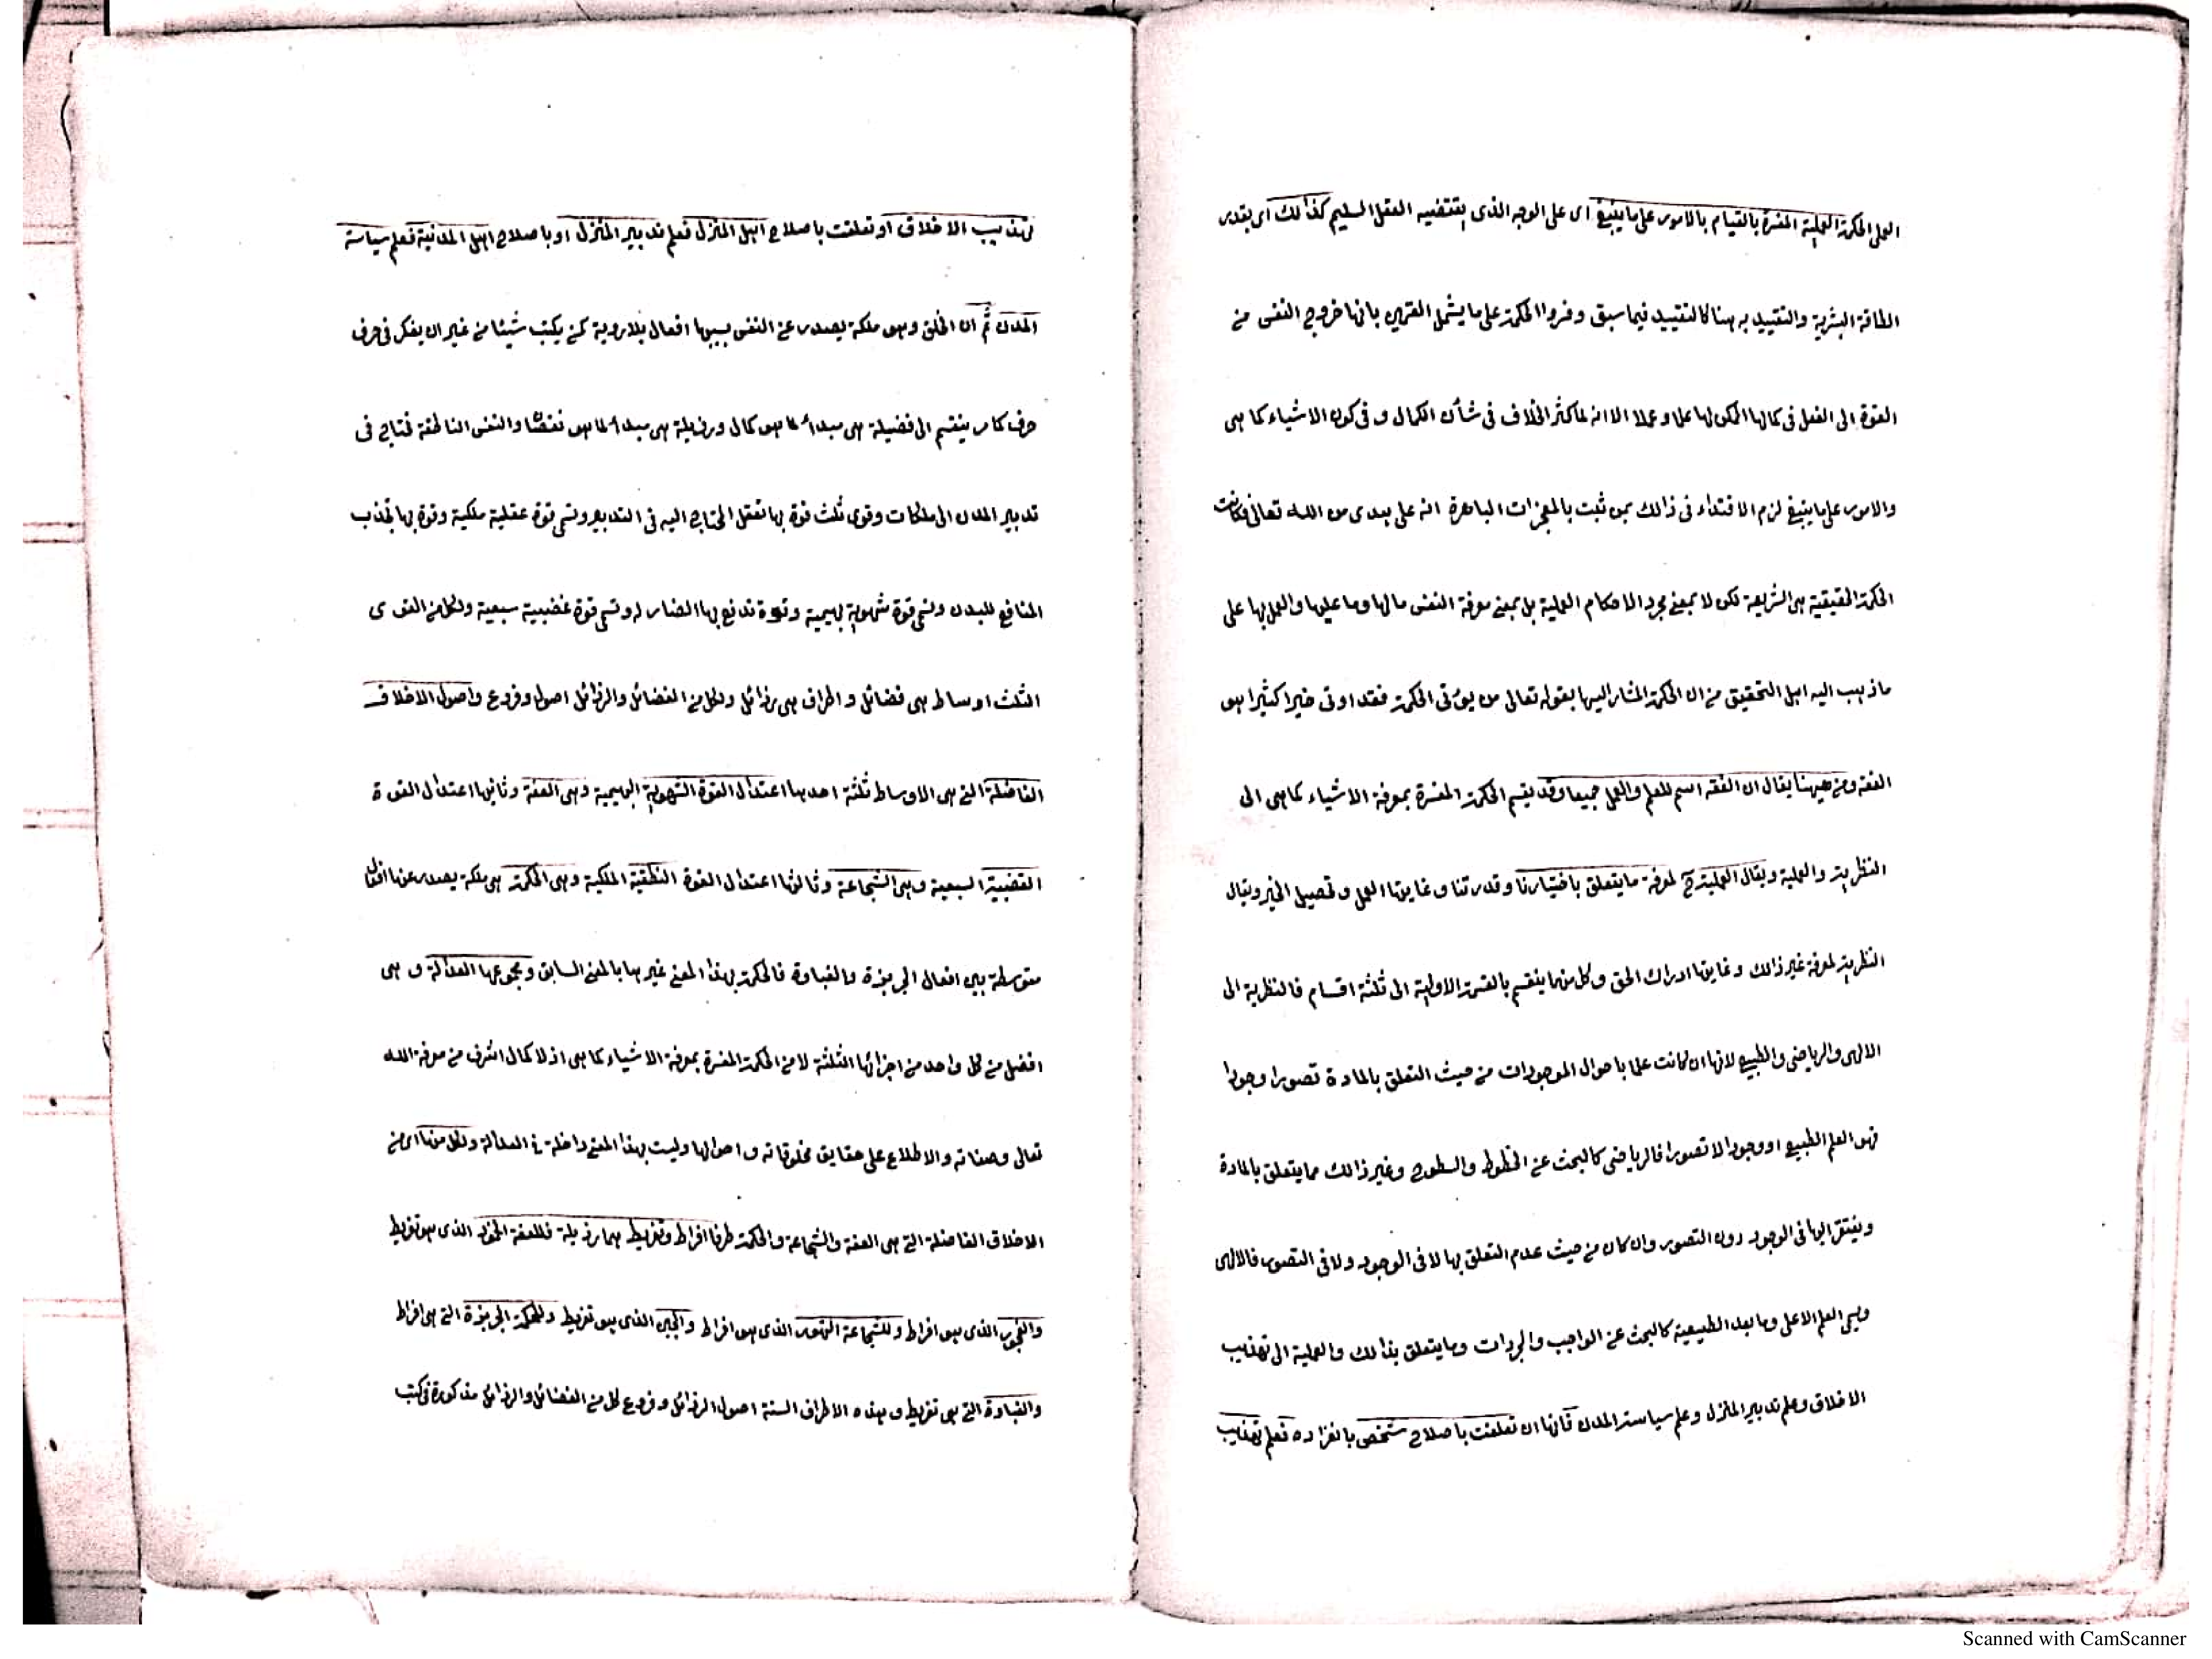 العملى الحكمة العملية المفسرة بالقيام بالامور على ما ينبغى اى على الوجه الذى يقتضيه العقل السليم كذالك اى بقدر
الطاقة البشرية والتقييد به ههنا كالتقييد فيما سبق وفسروا الحكمة على ما يشمل القسمين بانها خروج النفس من
القوة الى الفعل فى كمالها الممكن لها علما وعملا الا انه لما كثر الخلاف فى شأن الكمال و فى كون الاشياء كما هى
والامور على ما ينبغى لزم الاقتداء فى ذالك بمن ثبت بالمعجزات الباهرة انه على هدى من الله تعالى فكانت
الحكمة الحقيقية هى الشريعة لكن لا بمعنى مجرد الاحكام العملية بل بمعنى معرفة النفس ما لها وما عليها والعمل بها على
ما ذهب اليه اهل التحقيق من ان الحكمة المشار اليها بقوله تعالى من يؤتى الحكمة فقد اوتى خيرا كثيرا هو
الفقه ومن ههنا يقال ان الفقه اسم للعلم والعمل جميعا وقد يقسم الحكمة المفسرة بمعرفة الاشياء كما هى الى
النظرية والعملية ويقال العملية ح لمعرفة ما يتعلق باختيارنا وقدرتنا و غايتها العمل و تحصيل الخير ويقال
النظرية لمعرفة غير ذالك وغايتها ادراك الحق وكل منهما ينقسم بالقسمة الاولية الى ثلثة اقسام فالنظرية الى
الالهى والرياضى والطبيعى لانها ان كانت علما باحوال الموجودات من حيث التعلق بالمادة تصورا وجودا
فهو العلم الطبيعى او وجودا لا تصورا فالرياضى كالبحث عن الخطوط والسطوح وغير ذالك مما يتعلق بالمادة
ويفتقر اليها فى الوجود دون التصور وان كان من حيث عدم التعلق بها لا فى الوجود ولا فى التصور فالالهى
ويسمى العلم الاعلى وما بعد الطبيعية كالبحث عن الواجب والمجردات وما يتعلق بذالك والعملية الى تهذيب
الاخلاق وعلم تدبير المنزل وعلم سياسة المدن فانها ان تعلقت باصلاح شخص بانفراده فعلم تهذيب
تهذيب الاخلاق او تعلقت باصلاح اهل المنزل فعلم تدبير المنزل او باصلاح اهل المدنية فعلم سياسة
المدن ثم ان الخلق وهو ملكة يصدر عن النفس بسببها افعال بلا روية كمن يكتب شيئا من غير ان يفكر فى حرف
حرف كما مر ينقسم الى فضيلة هى مبدأ لما هو كمال ورذيلة هى مبدأ لما هو نقصان والنفس الناطقة تحتاج فى
تدبير المدن الى ملكات وقوى ثلث قوة بها تعقل المحتاج اليه فى التدبير وتسمى قوة عقلية ملكية وقوة بها تجذب
المنافع للبدن وتسمى قوة شهوية بهيمية وقوة تدفع بها المضار له وتسمى قوة غضبية سبعية ولكل من القوى
الثلث اوساط هى فضائل و اطراف هى رذائل ولكل من الفضائل والرذائل اصول وفروع واصول الاخلاق
الفاضلة التى هى الاوساط ثلثة احدها اعتدال القوة الشهوية البهيمية وهى العفة وثانيها اعتدال القوة
الغضبية السبعية وهى الشجاعة وثالثها اعتدال القوة النطقية الملكية وهى الحكمة هى ملكة يصدر عنها افعال
متوسطة بين افعال الجربزة والغباوة فالحكمة بهذا المعنى غيرها بالمعنى السابق ومجموعها العدالة و هى
افضل من كل واحد من اجزائها الثلثة لا من الحكمة المفسرة بمعرفة الاشياء كما هى اذ لا كمال اشرف من معرفة الله
تعالى وصفاته والاطلاع على حقايق مخلوقاته واحوالها وليست بهذا المعنى داخلة فى العدالة ولكل منها اى من
الاخلاق الفاضلة التى هى العفة والشجاعة والحكمة طرفا افراط وتفريط هما رذيلة فللعفة الخمود الذى هو تفريط
والفجور الذى هو افراط وللشجاعة التهور الذى هو افراط والجبن الذى هو تفريط وللحكمة الجربزة التى هى افراط
والغباوة التى هى تفريط و هذه الاطراف الستة اصول الرذائل و فروع كل من الفضائل والرذائل مذكورة فى كتب
Scanned with CamScanner